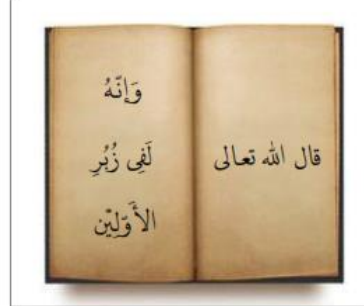 قال الله تعالى
وَإِنّهُ
لَفِى زُبُرِ
الأَوّلِيْن